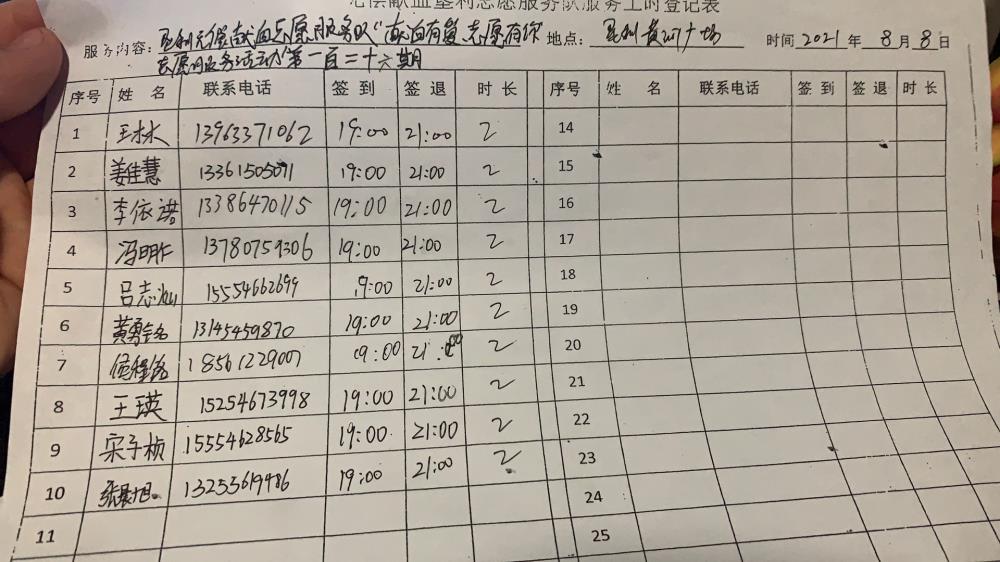 无偿献血垦利志愿服务队服务工时登记表
服务内容：垦利无偿献血志愿服务队"献血有爱 志愿有你 地点： 垦利黄河广场 时间 2021 年 8 月 8 日
志愿服务活动"第一百二十六期
序号 姓 名 联系电话 签 到 签 退 时 长 序号 姓 名 联系电话 签 到 签 退 时 长
1 王冰冰 13963371062 19:00 21:00 2 14
2 姜佳慧 13361505091 19:00 21:00 2 15
3 李依诺 13386470115 19:00 21:00 2 16
4 冯明 13780759306 19:00 21:00 2 17
5 吕志灿 15554662699 19:00 21:00 2 18
6 黄勇 13145459870 19:00 21:00 2 19
7 侯程铭 18561229007 19:00 21:00 2 20
8 王瑛 15254673998 19:00 21:00 2 21
9 宋子桢 15554628565 19:00 21:00 2 22
10 张晨旭 13255619486 19:00 21:00 2 23
11 24
25